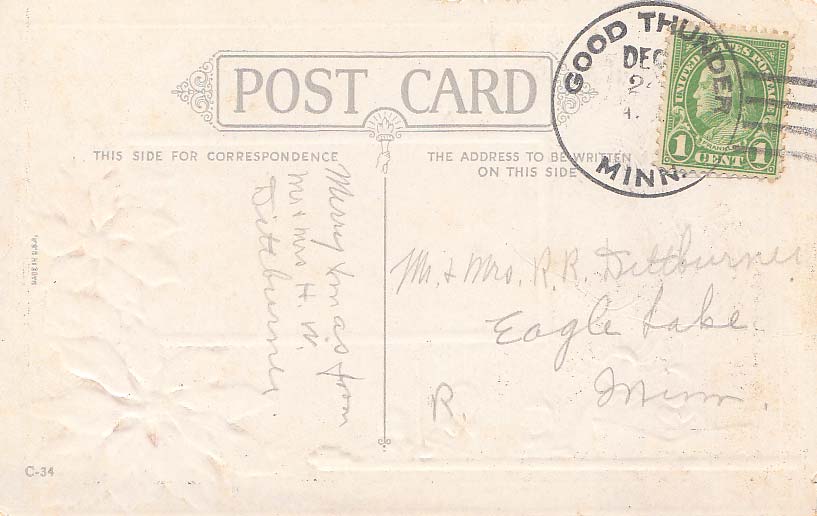 POST CARD
THIS SIDE FOR CORRESPONDENCE
THE ADDRESS TO BE WRITTEN
ON THIS SIDE
GOOD THUNDER
DEC
MINN.
UNITED STATES POSTAGE
FRANKLIN
1 CENT 1
MADE IN U.S.A.
Merry Xmas from
Mr & Mrs H. W.
Dittburner
Mr. & Mrs. R. R. Dittburner
Eagle Lake
R. Minn.
C-34